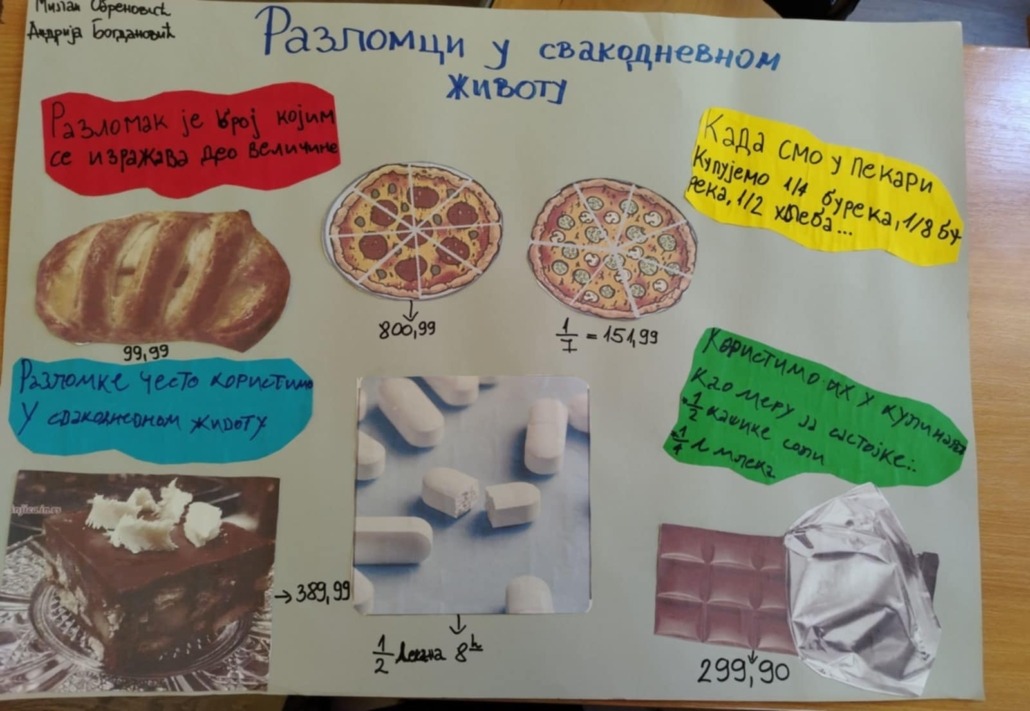 Милан Обреновић
Андрија Богдановић
Разломци у свакодневном
животу
Разломак је број којим
се изражава део величине
Када смо у пекари
Купујемо 1/4 бурека, 1/8 бу
река, 1/2 хлеба...
800,99
1/7 = 151,99
99,99
Разломке често користимо
у свакодневном животу
Користимо их у кулинаљи
као меру за састојке:
1/2 кашике соли
1/4 л млека
389,99
1/2 8h
299,90